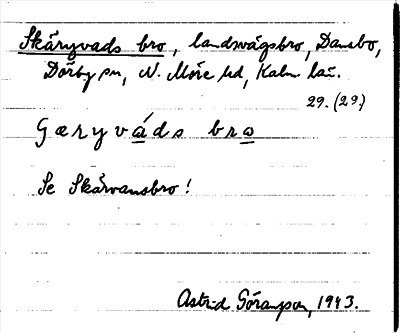 Skäryvads bro, landsvägsbro, Dansbo,
Dörby sn, N. Möre hd, Kalm län.
29. (29.)
Gæryváds bro
Se Skärvansbro!
Astrid Göransson, 1943.